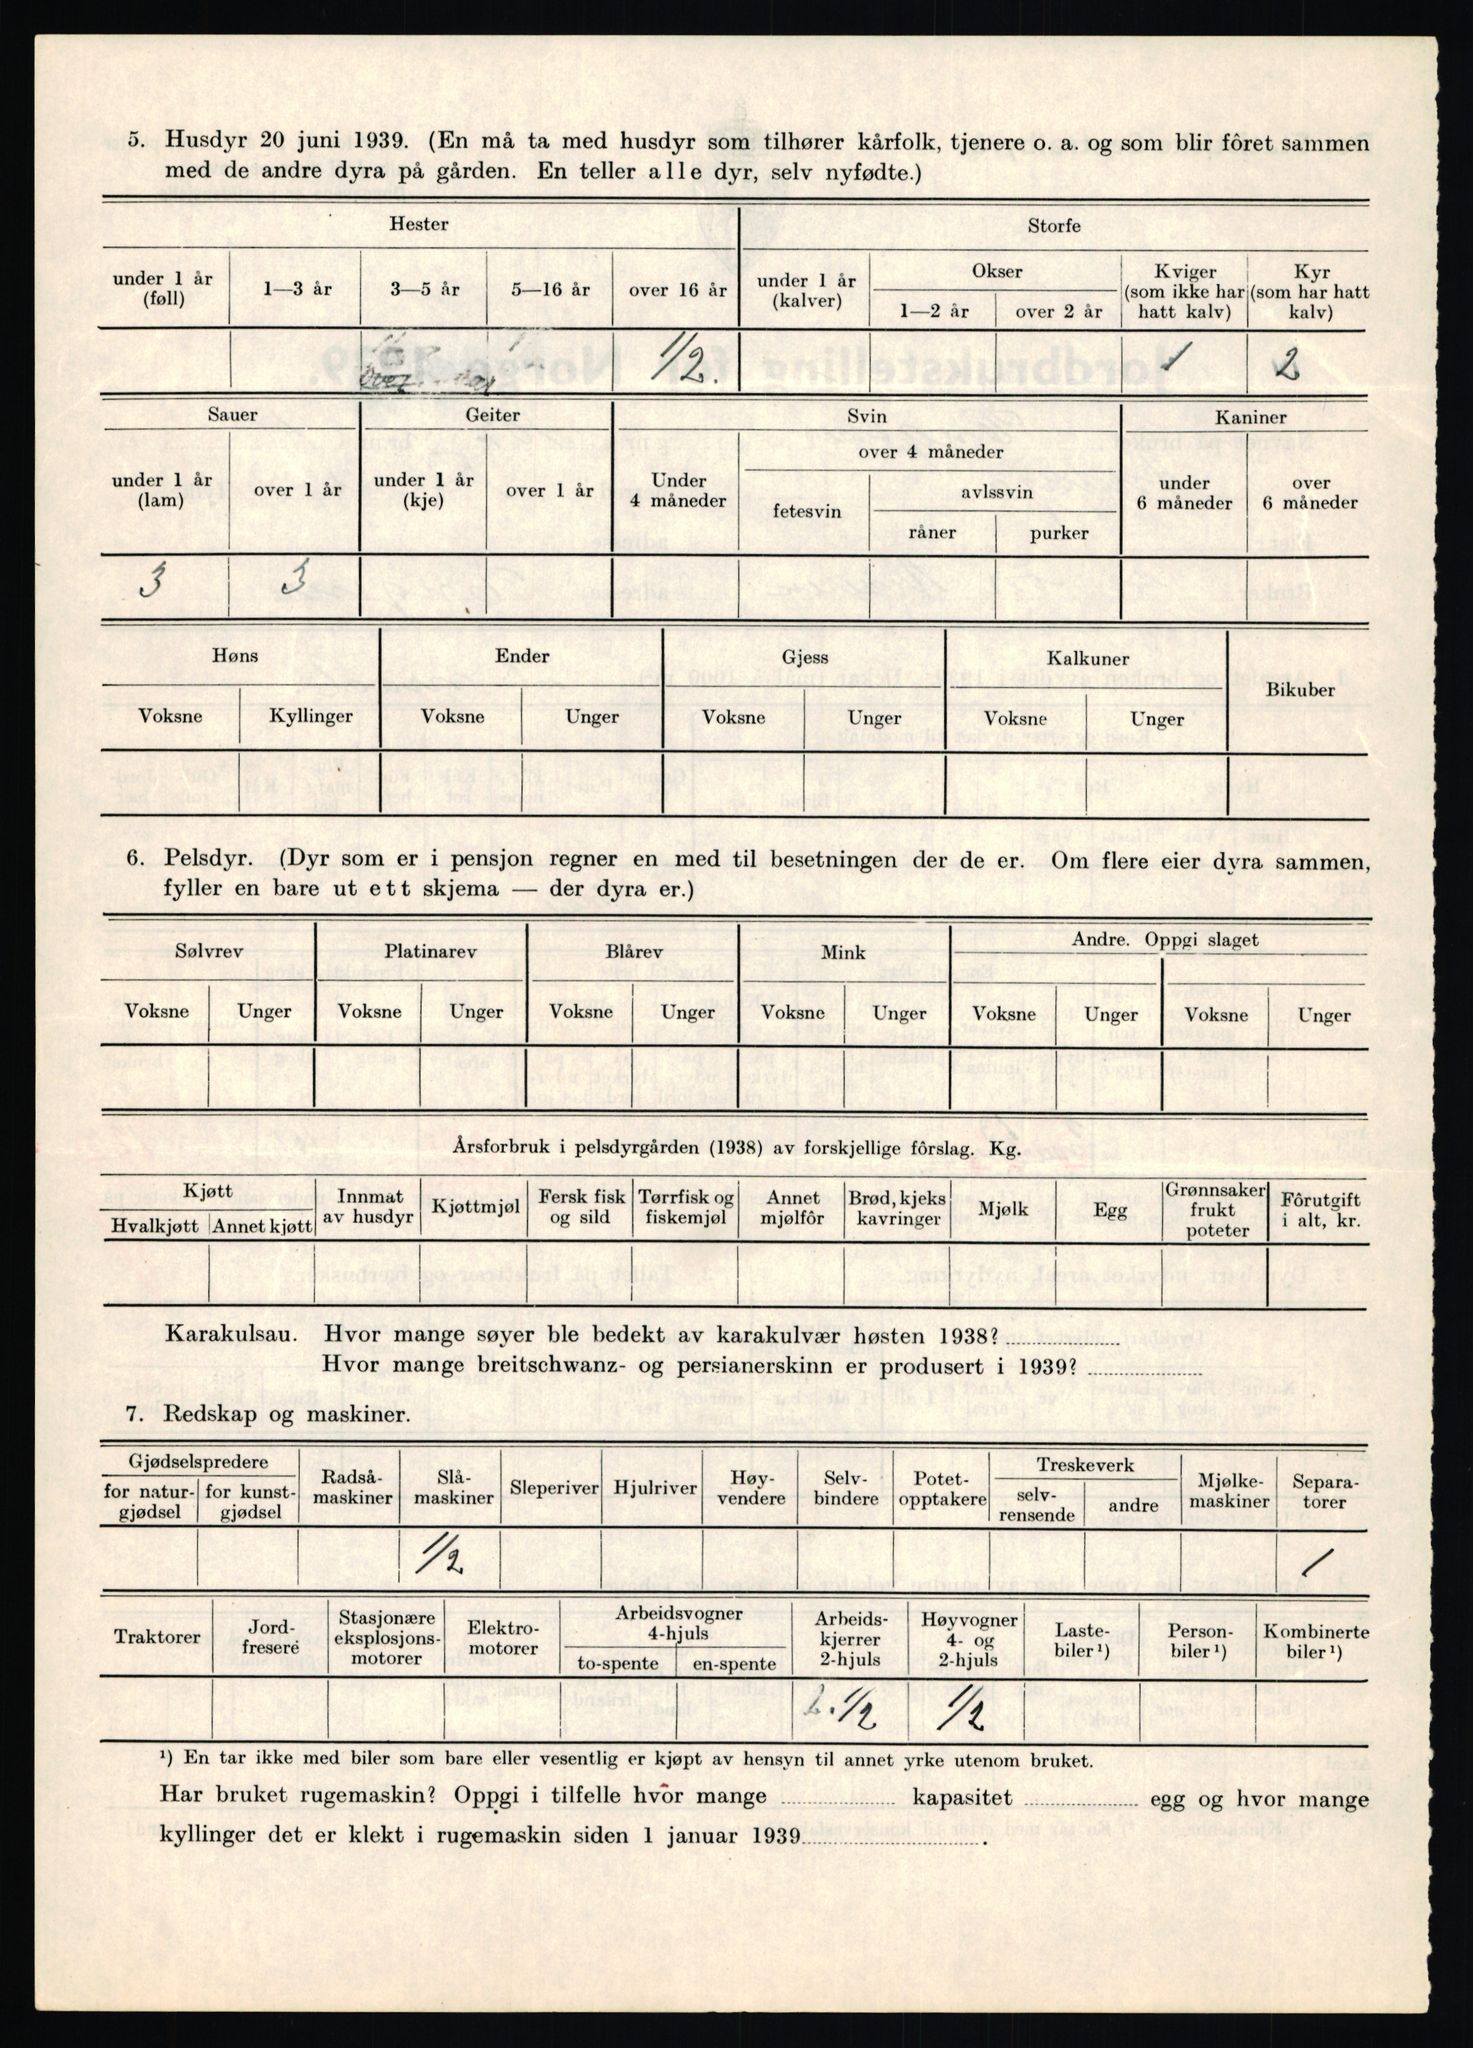 5. Husdyr 20 juni 1939. (En må ta med husdyr som tilhører kårfolk, tjenere o. a. og som blir fôret sammen
med de andre dyra på gården. En teller alle dyr, selv nyfødte.)
Hester Storfe
under 1 år (føll) 1—3 år 3—5 år 5—16 år over 16 år under 1 år (kalver) Okser 1—2 år over 2 år Kviger (som ikke har hatt kalv) Kyr (som har hatt kalv)
1/2. 1 2
Sauer Geiter Svin Kaniner
under 1 år (lam) over 1 år under 1 år (kje) over 1 år Under 4 måneder over 4 måneder fetesvin avlssvin råner purker under 6 måneder over 6 måneder
3 3
Høns Ender Gjess Kalkuner Bikuber
Voksne Kyllinger Voksne Unger Voksne Unger Voksne Unger
6. Pelsdyr. (Dyr som er i pensjon regner en med til besetningen der de er. Om flere eier dyra sammen,
fyller en bare ut ett skjema — der dyra er.)
Sølvrev Platinarev Blårev Mink Andre. Oppgi slaget
Voksne Unger Voksne Unger Voksne Unger Voksne Unger Voksne Unger Voksne Unger
Årsforbruk i pelsdyrgården (1938) av forskjellige fôrslag. Kg.
Kjøtt Hvalkjøtt Annet kjøtt Innmat av husdyr Kjøttmjøl Fersk fisk og sild Tørrfisk og fiskemjøl Annet mjølfôr Brød, kjeks kavringer Mjølk Egg Grønnsaker frukt poteter Fôrutgift i alt, kr.
Karakulsau. Hvor mange søyer ble bedekt av karakulvær høsten 1938?
Hvor mange breitschwanz- og persianerskinn er produsert i 1939?
7. Redskap og maskiner.
Gjødselspredere for natur-gjødsel for kunst-gjødsel Radså-maskiner Slå-maskiner Sleperiver Hjulriver Høy-vendere Selv-bindere Potet-opptakere Treskeverk selv-rensende andre Mjølke-maskiner Separa-torer
1/2 1
Traktorer Jord-fresere Stasjonære eksplosjons-motorer Elektro-motorer Arbeidsvogner 4-hjuls to-spente en-spente Arbeids-kjerrer 2-hjuls Høyvogner 4- og 2-hjuls Laste-biler ¹) Person-biler ¹) Kombinerte biler ¹)
1/2 1/2
¹) En tar ikke med biler som bare eller vesentlig er kjøpt av hensyn til annet yrke utenom bruket.
Har bruket rugemaskin? Oppgi i tilfelle hvor mange kapasitet egg og hvor mange
kyllinger det er klekt i rugemaskin siden 1 januar 1939 .